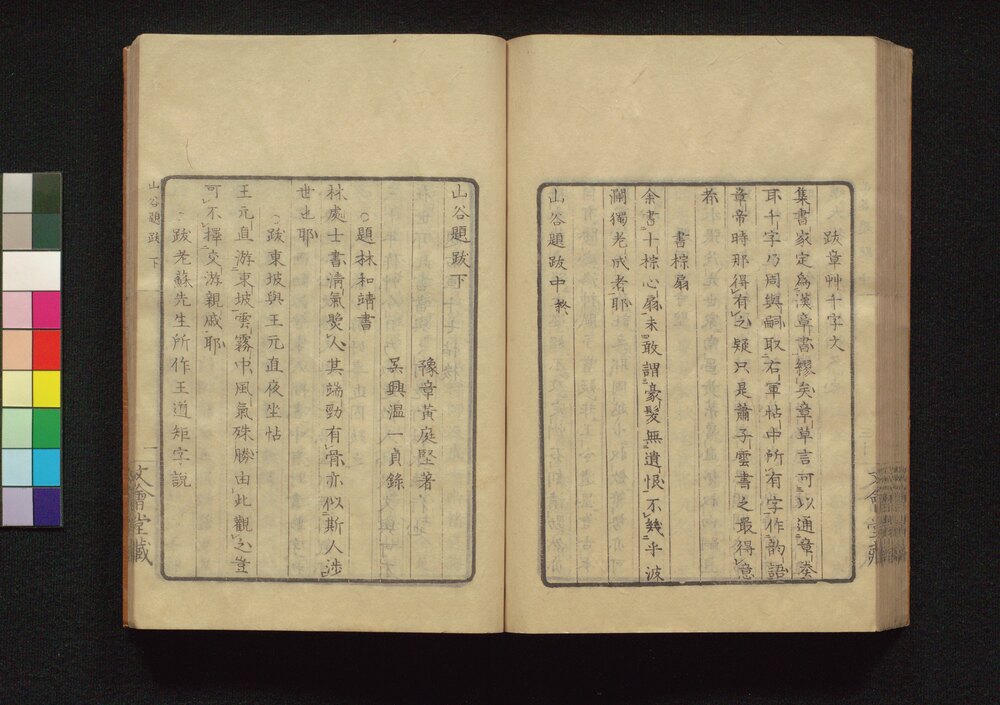 跋章艸千字文
集書家定為漢章書繆矣章草言可以通章奏
耳千字乃周興嗣取右軍帖中所有字作韵語
章帝時那得有之疑只是蕭子雲書之最得意
者
書棕扇
余書十棕心扇未敢謂豪髮無遺恨不幾乎波
瀾獨老成者耶
山谷題跋中終
文會堂藏
山谷題跋下
豫章黄庭堅著
吴興溫一貞錄
○題林和靖書
林處士書清氣熨人其端勁有骨亦似斯人涉
世也耶
○跋東坡與王元直夜坐帖
王元直游東坡雲霧中風氣殊勝由此觀之豈
可不擇交游親戚耶
○跋老蘇先生所作王道矩字說
山谷題跋下
一
文會堂藏